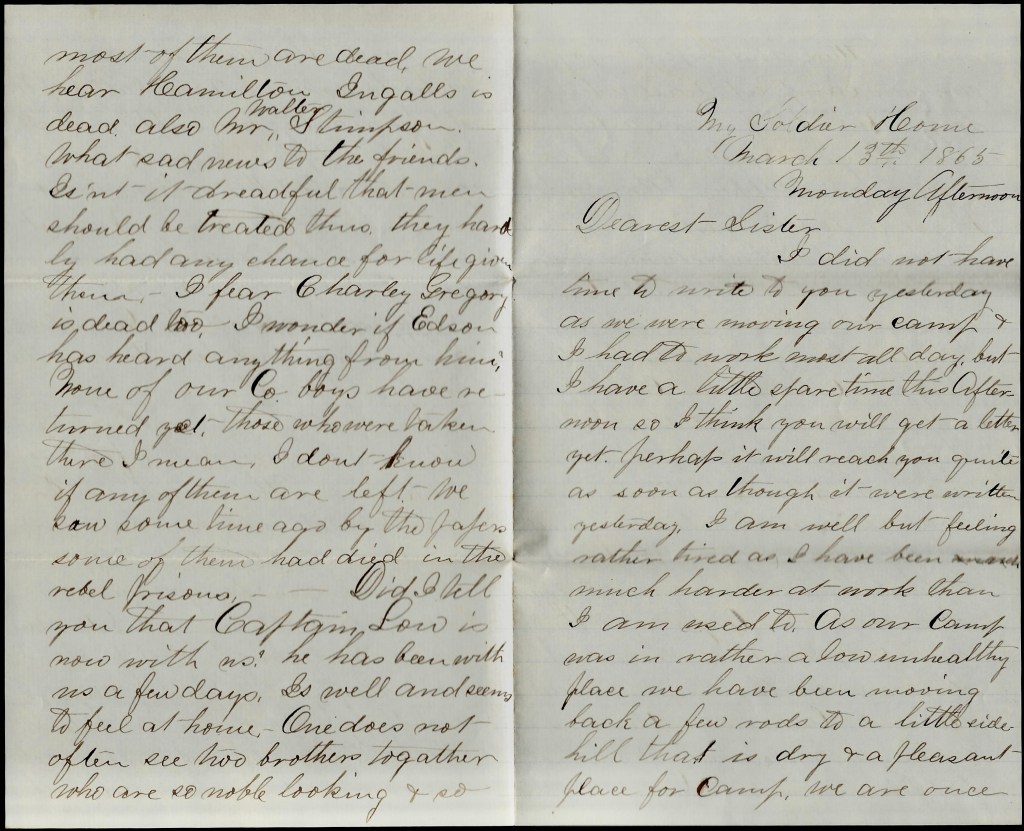 most of them are dead, we
hear Hamilton Ingalls is
dead. also Mr. Walter Stimpson. —
What sad news to the friends.
Is'nt it dreadful that men
should be treated thus. they hard
ly had any chance for life given
them, — I fear Charley Gregory
is dead too, I wonder if Edson
has heard anything from him,
None of our Co. boys have re-
turned yet, those who were taken
there I mean, I dont know
if any of them are left. We
saw some time ago by the papers
some of them had died in the
rebel prisons, — — Did I tell
you that Captain Low is
now with us? he has been with
us a few days. Is well and seems
to feel at home, — One does not
often see two brothers togather
who are so noble looking & so
My Soldier Home
March 13th 1865
Monday Afternoon
Dearest Sister
I did not have
time to write to you yesterday
as we were moving our camp &
I had to work most all day, but
I have a little spare time this After-
noon so I think you will get a letter
yet. perhaps it will reach you quite
as soon as though it were written
yesterday. I am well but feeling
rather tired as I have been
much harder at work than
I am used to. As our Camp
was in rather a low unhealthy
place we have been moving
back a few rods to a little side-
hill that is dry & a pleasant
place for Camp, we are once